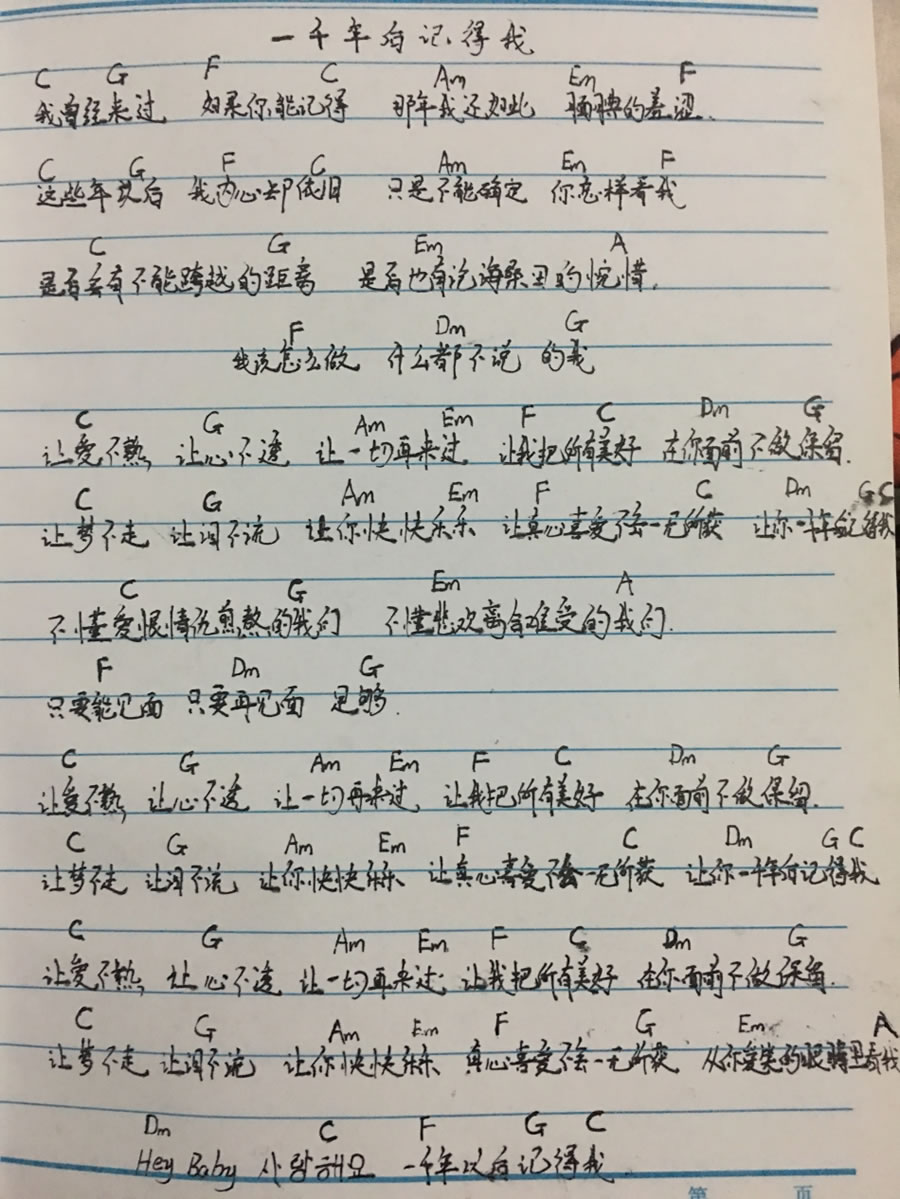 一千年后记得我
C G F C Am Em F
我曾经来过 如果你能记得 那年我还如此 腼腆的羞涩.
C G F C Am Em F
这些年以后 我内心却依旧 只是不能确定 你怎样看我
C G Em A
是否会有不能跨越的距离 是否也有沧海桑田的惋惜.
F Dm G
我该怎么做 什么都不说 的我
C G Am Em F C Dm G
让爱不熟, 让心不遥 让一切再来过, 让我把所有美好 在你面前不做保留.
C G Am Em F C Dm G C
让梦不走 让泪不流 让你快快乐乐 让真心喜爱不会一无所获 让你一千年后记得我
C G Em A
不懂爱恨情仇煎熬的我们 不懂悲欢离合难受的我们.
F Dm G
只要能见面 只要再见面 足够.
C G Am Em F C Dm G
让爱不熟, 让心不遥 让一切再来过, 让我把所有美好 在你面前不做保留.
C G Am Em F C Dm G C
让梦不走 让泪不流 让你快快乐乐 让真心喜爱不会一无所获 让你一千年后记得我
C G Am Em F C Dm G
让爱不熟, 让心不遥 让一切再来过, 让我把所有美好 在你面前不做保留.
C G Am Em F G Em A
让梦不走 让泪不流 让你快快乐乐 真心喜爱不会一无所获 从你爱笑的眼睛里看我
Dm C F G C
Hey Baby 사랑해요 一千年以后记得我.
第 页